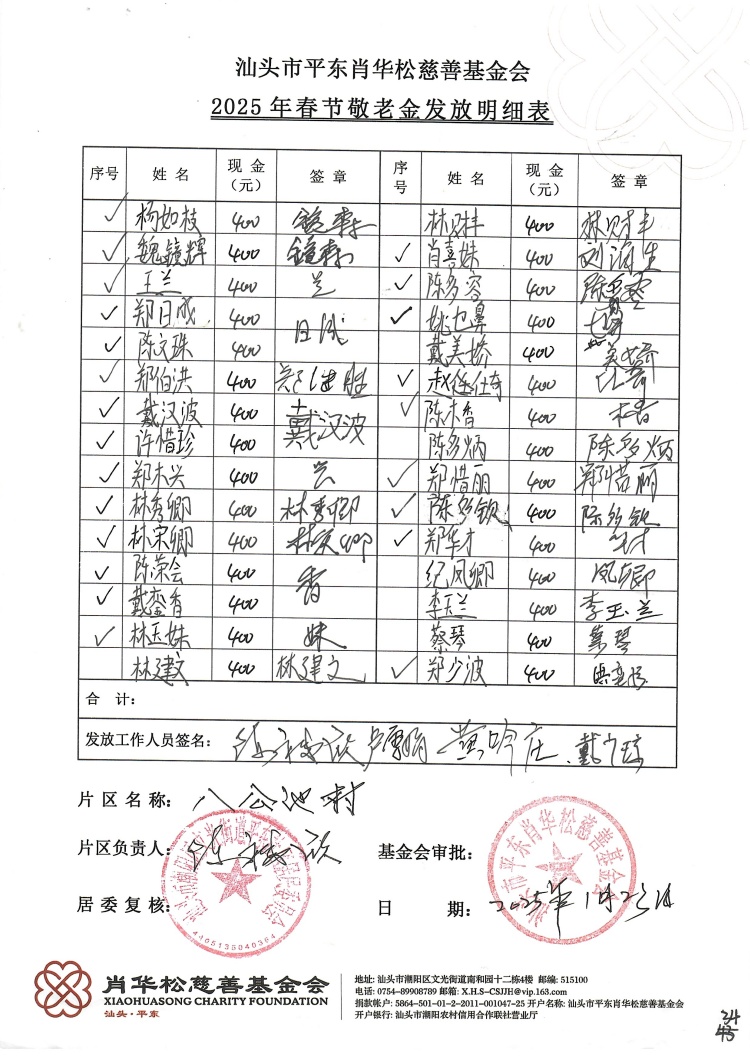 汕头市平东肖华松慈善基金会
2025年春节敬老金发放明细表
序号 姓名 现金（元） 签章 序号 姓名 现金（元） 签章
✓ 杨如枝 400 林财丰 400 林财丰
✓ 魏镜辉 400 镜辉 ✓ 肖喜妹 400 刘润生
✓ 王兰 400 兰 ✓ 陈多容 400
✓ 郑日成 400 日成 ✓ 400
✓ 陈文珠 400 戴美娇 400
✓ 郑伯洪 400 ✓ 400
✓ 戴汉波 400 戴汉波 ✓ 陈木香 400 木香
✓ 许惜珍 400 陈多炳 400 陈多炳
✓ 郑木兴 400 兴 ✓ 郑惜丽 400 郑惜丽
✓ 林秀卿 400 林秀卿 ✓ 陈多钦 400 陈多钦
✓ 林宋卿 400 ✓ 郑华才 400 才
✓ 陈荣会 400 纪凤卿 400 凤卿
✓ 戴銮香 400 香 李玉兰 400 李玉兰
✓ 林玉妹 400 妹 蔡琴 400 琴
林建文 400 林建文 ✓ 郑少波 400
合计：
发放工作人员签名：
片区名称：八公池村
片区负责人：
基金会审批：
居委复核：
日期：2025年1月23日
汕头市平东肖华松慈善基金会
4405135040364
肖华松慈善基金会
XIAOHUASONG CHARITY FOUNDATION
汕头·平东
地址: 汕头市潮阳区文光街道南和园十二栋4楼 邮编: 515100
电话: 0754-89908789 邮箱: X.H.S-CSJJH@vip.163.com
捐款帐户: 5864-501-01-2-2011-001047-25 开户名称: 汕头市平东肖华松慈善基金会
开户银行: 汕头市潮阳农村信用合作联社营业厅